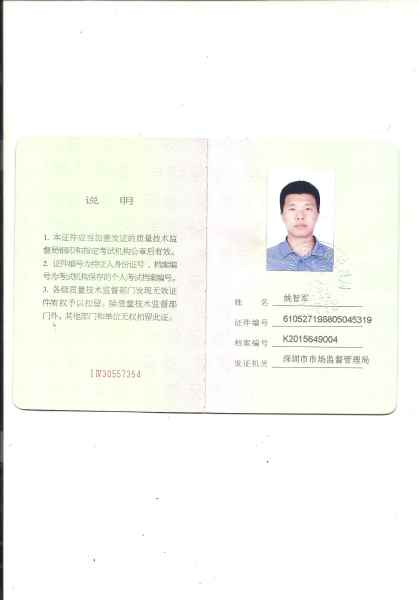 说 明
1. 本证件应当加盖发证的质量技术监
督局钢印和指定考试机构公章后有效。
2. 证件编号为持证人身份证号，档案编
号为考试机构保存的个人考试档案编号。
3. 各级质量技术监督部门发现无效证
件有权予以扣留，除质量技术监督部
门外，其他部门和单位无权扣留此证。
30557354
姓 名 姚智军
证件编号 610527198805045319
档案编号 K2015649004
发证机关 深圳市市场监督管理局